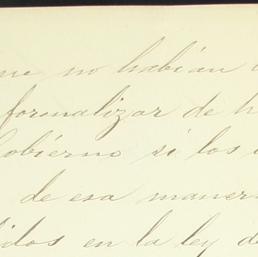 que no habían
formalizar de h
Gobierno si los
de esa maner
idos en la ley de